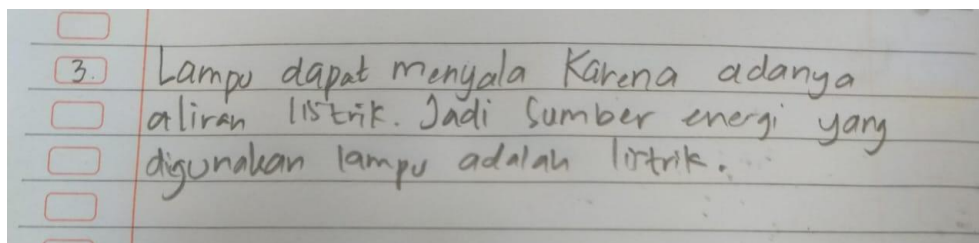 3. Lampu dapat menyala Karena adanya
aliran listrik. Jadi Sumber energi yang
digunakan lampu adalah listrik.